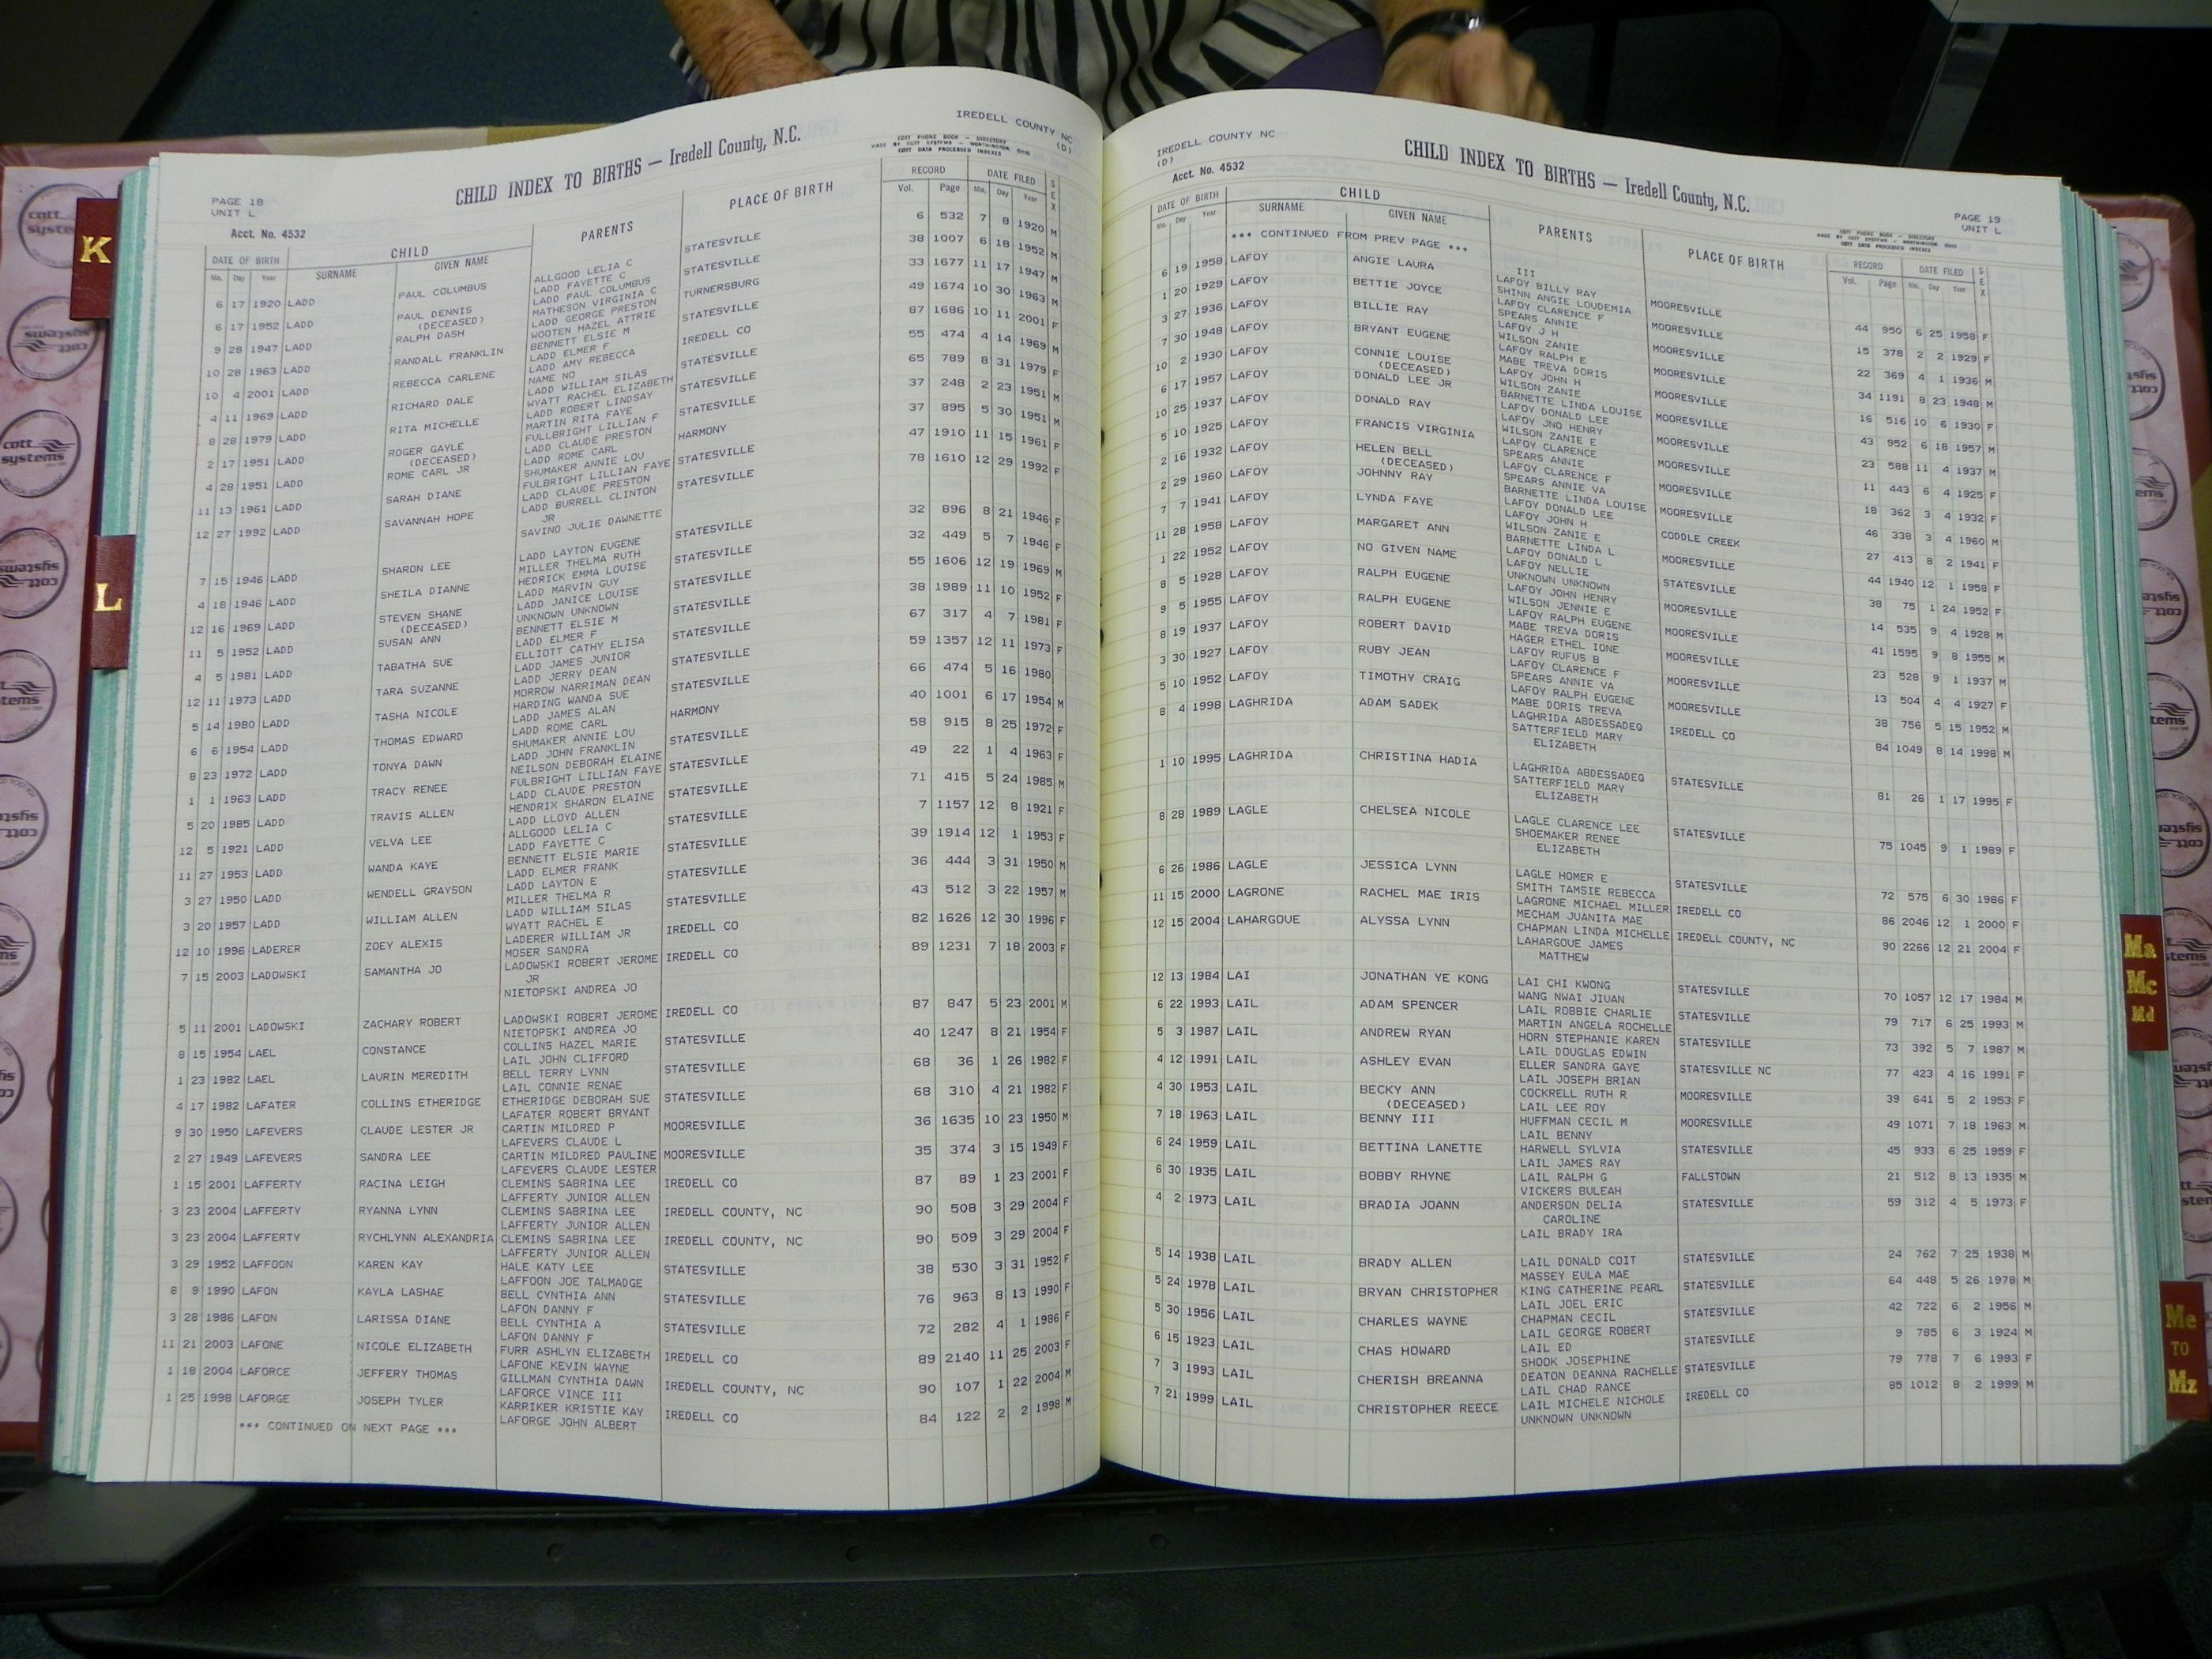 IREDELL COUNTY NC
(D)
CHILD INDEX TO BIRTHS — Iredell County, N.C.
COTT PHONE BOOK — DIRECTORY
MADE BY COTT SYSTEMS — WORTHINGTON, OHIO
COTT DATA PROCESSED INDEXES
PAGE 18
UNIT L
Acct. No. 4532
DATE OF BIRTH CHILD PARENTS PLACE OF BIRTH RECORD DATE FILED SEX
Mo. Day Year SURNAME GIVEN NAME Vol. Page Mo. Day Year
6 17 1920 LADD PAUL COLUMBUS ALLGOOD LELIA C STATESVILLE 6 532 7 8 1920 M
LADD FAYETTE C
6 17 1952 LADD PAUL DENNIS LADD PAUL COLUMBUS STATESVILLE 38 1007 6 18 1952 M
(DECEASED) MATHESON VIRGINIA C
9 28 1947 LADD RALPH DASH LADD GEORGE PRESTON TURNERSBURG 33 1677 11 17 1947 M
WOOTEN HAZEL ATTRIE
10 28 1963 LADD RANDALL FRANKLIN BENNETT ELSIE M STATESVILLE 49 1674 10 30 1963 M
LADD ELMER F
10 4 2001 LADD REBECCA CARLENE LADD AMY REBECCA IREDELL CO 87 1686 10 11 2001 F
NAME NO
4 11 1969 LADD RICHARD DALE LADD WILLIAM SILAS STATESVILLE 55 474 4 14 1969 M
WYATT RACHEL ELIZABETH
8 28 1979 LADD RITA MICHELLE LADD ROBERT LINDSAY STATESVILLE 65 789 8 31 1979 F
MARTIN RITA FAYE
2 17 1951 LADD ROGER GAYLE FULLBRIGHT LILLIAN F STATESVILLE 37 248 2 23 1951 M
(DECEASED) LADD CLAUDE PRESTON
4 28 1951 LADD ROME CARL JR LADD ROME CARL HARMONY 37 895 5 30 1951 M
SHUMAKER ANNIE LOU
11 13 1961 LADD SARAH DIANE FULBRIGHT LILLIAN FAYE STATESVILLE 47 1910 11 15 1961 F
LADD CLAUDE PRESTON
12 27 1992 LADD SAVANNAH HOPE LADD BURRELL CLINTON STATESVILLE 78 1610 12 29 1992 F
JR
SAVINO JULIE DAWNETTE
7 15 1946 LADD SHARON LEE LADD LAYTON EUGENE STATESVILLE 32 896 8 21 1946 F
MILLER THELMA RUTH
4 18 1946 LADD SHEILA DIANNE HEDRICK EMMA LOUISE STATESVILLE 32 449 5 7 1946 F
LADD MARVIN GUY
12 16 1969 LADD STEVEN SHANE LADD JANICE LOUISE STATESVILLE 55 1606 12 19 1969 M
(DECEASED) UNKNOWN UNKNOWN
11 5 1952 LADD SUSAN ANN BENNETT ELSIE M STATESVILLE 38 1989 11 10 1952 F
LADD ELMER F
4 5 1981 LADD TABATHA SUE ELLIOTT CATHY ELISA STATESVILLE 67 317 4 7 1981 F
LADD JAMES JUNIOR
12 11 1973 LADD TARA SUZANNE LADD JERRY DEAN STATESVILLE 59 1357 12 11 1973 F
MORROW NARRIMAN DEAN
5 14 1980 LADD TASHA NICOLE HARDING WANDA SUE STATESVILLE 66 474 5 16 1980
LADD JAMES ALAN
6 6 1954 LADD THOMAS EDWARD LADD ROME CARL HARMONY 40 1001 6 17 1954 M
SHUMAKER ANNIE LOU
8 23 1972 LADD TONYA DAWN LADD JOHN FRANKLIN STATESVILLE 58 915 8 25 1972 F
NEILSON DEBORAH ELAINE
1 1 1963 LADD TRACY RENEE FULBRIGHT LILLIAN FAYE STATESVILLE 49 22 1 4 1963 F
LADD CLAUDE PRESTON
5 20 1985 LADD TRAVIS ALLEN HENDRIX SHARON ELAINE STATESVILLE 71 415 5 24 1985 M
LADD LLOYD ALLEN
12 5 1921 LADD VELVA LEE ALLGOOD LELIA C STATESVILLE 7 1157 12 8 1921 F
LADD FAYETTE C
11 27 1953 LADD WANDA KAYE BENNETT ELSIE MARIE STATESVILLE 39 1914 12 1 1953 F
LADD ELMER FRANK
3 27 1950 LADD WENDELL GRAYSON LADD LAYTON E STATESVILLE 36 444 3 31 1950 M
MILLER THELMA R
3 20 1957 LADD WILLIAM ALLEN LADD WILLIAM SILAS STATESVILLE 43 512 3 22 1957 M
WYATT RACHEL E
12 10 1996 LADERER ZOEY ALEXIS LADERER WILLIAM JR IREDELL CO 82 1626 12 30 1996 F
MOSER SANDRA
7 15 2003 LADOWSKI SAMANTHA JO LADOWSKI ROBERT JEROME IREDELL CO 89 1231 7 18 2003 F
JR
NIETOPSKI ANDREA JO
5 11 2001 LADOWSKI ZACHARY ROBERT LADOWSKI ROBERT JEROME IREDELL CO 87 847 5 23 2001 M
NIETOPSKI ANDREA JO
8 15 1954 LAEL CONSTANCE COLLINS HAZEL MARIE STATESVILLE 40 1247 8 21 1954 F
LAIL JOHN CLIFFORD
1 23 1982 LAEL LAURIN MEREDITH BELL TERRY LYNN STATESVILLE 68 36 1 26 1982 F
LAIL CONNIE RENAE
4 17 1982 LAFATER COLLINS ETHERIDGE ETHERIDGE DEBORAH SUE STATESVILLE 68 310 4 21 1982 F
LAFATER ROBERT BRYANT
9 30 1950 LAFEVERS CLAUDE LESTER JR CARTIN MILDRED P MOORESVILLE 36 1635 10 23 1950 M
LAFEVERS CLAUDE L
2 27 1949 LAFEVERS SANDRA LEE CARTIN MILDRED PAULINE MOORESVILLE 35 374 3 15 1949 F
LAFEVERS CLAUDE LESTER
1 15 2001 LAFFERTY RACINA LEIGH CLEMINS SABRINA LEE IREDELL CO 87 89 1 23 2001 F
LAFFERTY JUNIOR ALLEN
3 23 2004 LAFFERTY RYANNA LYNN CLEMINS SABRINA LEE IREDELL COUNTY, NC 90 508 3 29 2004 F
LAFFERTY JUNIOR ALLEN
3 23 2004 LAFFERTY RYCHLYNN ALEXANDRIA CLEMINS SABRINA LEE IREDELL COUNTY, NC 90 509 3 29 2004 F
LAFFERTY JUNIOR ALLEN
3 29 1952 LAFFOON KAREN KAY HALE KATY LEE STATESVILLE 38 530 3 31 1952 F
LAFFOON JOE TALMADGE
8 9 1990 LAFON KAYLA LASHAE BELL CYNTHIA ANN STATESVILLE 76 963 8 13 1990 F
LAFON DANNY F
3 28 1986 LAFON LARISSA DIANE BELL CYNTHIA A STATESVILLE 72 282 4 1 1986 F
LAFON DANNY F
11 21 2003 LAFONE NICOLE ELIZABETH FURR ASHLYN ELIZABETH IREDELL CO 89 2140 11 25 2003 F
LAFONE KEVIN WAYNE
1 18 2004 LAFORCE JEFFERY THOMAS GILLMAN CYNTHIA DAWN IREDELL COUNTY, NC 90 107 1 22 2004 M
LAFORCE VINCE III
1 25 1998 LAFORGE JOSEPH TYLER KARRIKER KRISTIE KAY IREDELL CO 84 122 2 2 1998 M
LAFORGE JOHN ALBERT
*** CONTINUED ON NEXT PAGE ***
IREDELL COUNTY NC
(D)
Acct. No. 4532
CHILD INDEX TO BIRTHS — Iredell County, N.C.
PAGE 19
UNIT L
COTT PHONE BOOK — DIRECTORY
MADE BY COTT SYSTEMS — WORTHINGTON, OHIO
COTT DATA PROCESSED INDEXES
DATE OF BIRTH CHILD PARENTS PLACE OF BIRTH RECORD DATE FILED SEX
Mo. Day Year SURNAME GIVEN NAME Vol. Page Mo. Day Year
*** CONTINUED FROM PREV PAGE ***
III
6 19 1958 LAFOY ANGIE LAURA LAFOY BILLY RAY MOORESVILLE 44 950 6 25 1958 F
SHINN ANGIE LOUDEMIA
1 20 1929 LAFOY BETTIE JOYCE LAFOY CLARENCE F MOORESVILLE 15 378 2 2 1929 F
SPEARS ANNIE
3 27 1936 LAFOY BILLIE RAY LAFOY J H MOORESVILLE 22 369 4 1 1936 M
WILSON ZANIE
7 30 1948 LAFOY BRYANT EUGENE LAFOY RALPH E MOORESVILLE 34 1191 8 23 1948 M
MABE TREVA DORIS
10 2 1930 LAFOY CONNIE LOUISE LAFOY JOHN H MOORESVILLE 16 516 10 6 1930 F
(DECEASED) WILSON ZANIE
6 17 1957 LAFOY DONALD LEE JR BARNETTE LINDA LOUISE MOORESVILLE 43 952 6 18 1957 M
LAFOY DONALD LEE
10 25 1937 LAFOY DONALD RAY LAFOY JNO HENRY MOORESVILLE 23 588 11 4 1937 M
WILSON ZANIE E
5 10 1925 LAFOY FRANCIS VIRGINIA LAFOY CLARENCE MOORESVILLE 11 443 6 4 1925 F
SPEARS ANNIE
2 16 1932 LAFOY HELEN BELL LAFOY CLARENCE F MOORESVILLE 18 362 3 4 1932 F
(DECEASED) SPEARS ANNIE VA
2 29 1960 LAFOY JOHNNY RAY BARNETTE LINDA LOUISE CODDLE CREEK 46 338 3 4 1960 M
LAFOY DONALD LEE
7 7 1941 LAFOY LYNDA FAYE LAFOY JOHN H MOORESVILLE 27 413 8 2 1941 F
WILSON ZANIE E
11 28 1958 LAFOY MARGARET ANN BARNETTE LINDA L STATESVILLE 44 1940 12 1 1958 F
LAFOY DONALD L
1 22 1952 LAFOY NO GIVEN NAME LAFOY NELLIE MOORESVILLE 38 75 1 24 1952 F
UNKNOWN UNKNOWN
8 5 1928 LAFOY RALPH EUGENE LAFOY JOHN HENRY MOORESVILLE 14 535 9 4 1928 M
WILSON JENNIE E
9 5 1955 LAFOY RALPH EUGENE LAFOY RALPH EUGENE MOORESVILLE 41 1595 9 8 1955 M
MABE TREVA DORIS
8 19 1937 LAFOY ROBERT DAVID HAGER ETHEL IONE MOORESVILLE 23 528 9 1 1937 M
LAFOY RUFUS B
3 30 1927 LAFOY RUBY JEAN LAFOY CLARENCE F MOORESVILLE 13 504 4 4 1927 F
SPEARS ANNIE VA
5 10 1952 LAFOY TIMOTHY CRAIG LAFOY RALPH EUGENE IREDELL CO 38 756 5 15 1952 M
MABE DORIS TREVA
8 4 1998 LAGHRIDA ADAM SADEK LAGHRIDA ABDESSADEQ 84 1049 8 14 1998 M
SATTERFIELD MARY
ELIZABETH
1 10 1995 LAGHRIDA CHRISTINA HADIA LAGHRIDA ABDESSADEQ STATESVILLE 81 26 1 17 1995 F
SATTERFIELD MARY
ELIZABETH
8 28 1989 LAGLE CHELSEA NICOLE LAGLE CLARENCE LEE STATESVILLE 75 1045 9 1 1989 F
SHOEMAKER RENEE
ELIZABETH
6 26 1986 LAGLE JESSICA LYNN LAGLE HOMER E STATESVILLE 72 575 6 30 1986 F
SMITH TAMSIE REBECCA
11 15 2000 LAGRONE RACHEL MAE IRIS LAGRONE MICHAEL MILLER IREDELL CO 86 2046 12 1 2000 F
MECHAM JUANITA MAE
12 15 2004 LAHARGOUE ALYSSA LYNN CHAPMAN LINDA MICHELLE IREDELL COUNTY, NC 90 2266 12 21 2004 F
LAHARGOUE JAMES
MATTHEW
12 13 1984 LAI JONATHAN YE KONG LAI CHI KWONG STATESVILLE 70 1057 12 17 1984 M
WANG NWAI JIUAN
6 22 1993 LAIL ADAM SPENCER LAIL ROBBIE CHARLIE STATESVILLE 79 717 6 25 1993 M
MARTIN ANGELA ROCHELLE
5 3 1987 LAIL ANDREW RYAN HORN STEPHANIE KAREN STATESVILLE 73 392 5 7 1987 M
LAIL DOUGLAS EDWIN
4 12 1991 LAIL ASHLEY EVAN ELLER SANDRA GAYE STATESVILLE NC 77 423 4 16 1991 F
LAIL JOSEPH BRIAN
4 30 1953 LAIL BECKY ANN COCKRELL RUTH R MOORESVILLE 39 641 5 2 1953 F
(DECEASED) LAIL LEE ROY
7 18 1963 LAIL BENNY III HUFFMAN CECIL M MOORESVILLE 49 1071 7 18 1963 M
LAIL BENNY
6 24 1959 LAIL BETTINA LANETTE HARWELL SYLVIA STATESVILLE 45 933 6 25 1959 F
LAIL JAMES RAY
6 30 1935 LAIL BOBBY RHYNE LAIL RALPH G FALLSTOWN 21 512 8 13 1935 M
VICKERS BULEAH
4 2 1973 LAIL BRADIA JOANN ANDERSON DELIA STATESVILLE 59 312 4 5 1973 F
CAROLINE
LAIL BRADY IRA
5 14 1938 LAIL BRADY ALLEN LAIL DONALD COIT STATESVILLE 24 762 7 25 1938 M
MASSEY EULA MAE
5 24 1978 LAIL BRYAN CHRISTOPHER KING CATHERINE PEARL STATESVILLE 64 448 5 26 1978 M
LAIL JOEL ERIC
5 30 1956 LAIL CHARLES WAYNE CHAPMAN CECIL STATESVILLE 42 722 6 2 1956 M
LAIL GEORGE ROBERT
6 15 1923 LAIL CHAS HOWARD LAIL ED STATESVILLE 9 785 6 3 1924 M
SHOOK JOSEPHINE
7 3 1993 LAIL CHERISH BREANNA DEATON DEANNA RACHELLE STATESVILLE 79 778 7 6 1993 F
LAIL CHAD RANCE
7 21 1999 LAIL CHRISTOPHER REECE LAIL MICHELE NICHOLE IREDELL CO 85 1012 8 2 1999 M
UNKNOWN UNKNOWN
K
L
Ma
Mc
Md
Me
TO
Mz
cott
systems